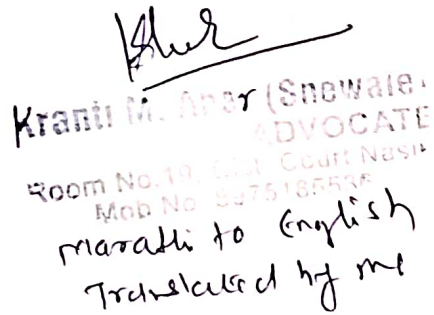 Kranti M. (Snewale
ADVOCATE
Room No.19, Dist. Court Nasik
Mob No
Marathi to English
Translated by me